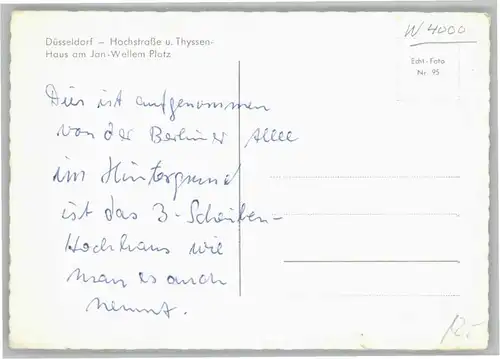 W 4000
Düsseldorf – Hochstraße u. Thyssen-
Haus am Jan-Wellem Platz
Echt-Foto
Nr. 95
Dies ist aufgenommen
von der Berliner Allee
im Hintergrund
ist das 3-Scheiben-
Hochhaus wie
man es auch
nennt.
12.-